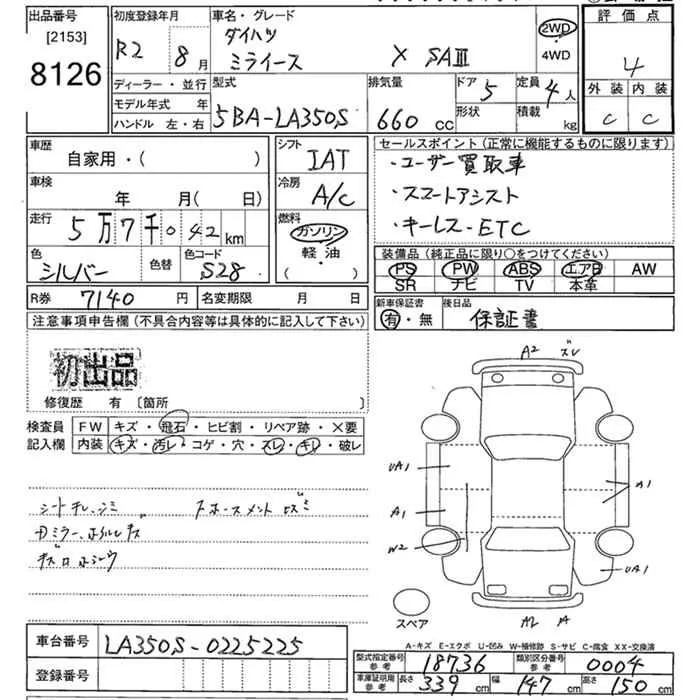 出品番号 [2153] 8126
初度登録年月 R2 8月
車名・グレード ダイハツ ミライース X SAⅢ
2WD 4WD
評価点 4
外装 内装
C C
ディーラー・並行
モデル年式 年
ハンドル 左・右
型式 5BA-LA350S
排気量 660 cc
ドア 5 形状
定員 4人
積載 kg
車歴 自家用・( )
シフト IAT
車検 年 月( 日)
冷房 A/C
走行 5万7千042km
燃料 ガソリン 軽・油 ( )
色 シルバー 色替 色コード S28
セールスポイント (正常に機能するものに限ります)
・ユーザー買取車
・スマートアシスト
・キーレス・ETC
装備品 (純正品に限り○をつけてください)
PS PW ABS エアB AW
SR ナビ TV 本革
R券 7140円 名変期限 月 日
新車保証書 有・無
後日品 保証書
注意事項申告欄 (不具合内容等は具体的に記入して下さい)
初出品
修復歴 有 〔箇所
検査員記入欄
FW キズ・飛石・ヒビ割・リペア跡・×要
内装 キズ・汚レ・コゲ・穴・スレ・キレ・破レ
シートキレ、シミ
A2 ズレ
UA1
A1
W2
A1
UA1
A2 A
スペア
A-キズ E-エクボ U-凹み W-補修跡 S-サビ C-腐食 XX-交換済
車台番号 LA350S-0225225
登録番号
型式指定番号 参考 18736
類別区分番号 参考 0004
車庫証明用 参考 長さ 339cm 幅 147cm 高さ 150cm